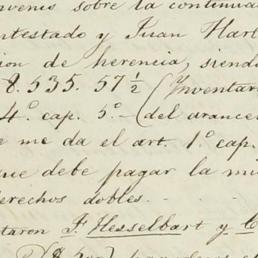 nvenis sobre la continua
ntestado y Juan Hart
ion de herencia, siend
8.535.57½ (Ynventar
4º cap. 5º - (del arancel
e me da el art. 1º cap.
que debe pagar la mi
derechos dobles.
taron F. Hesselbart y C